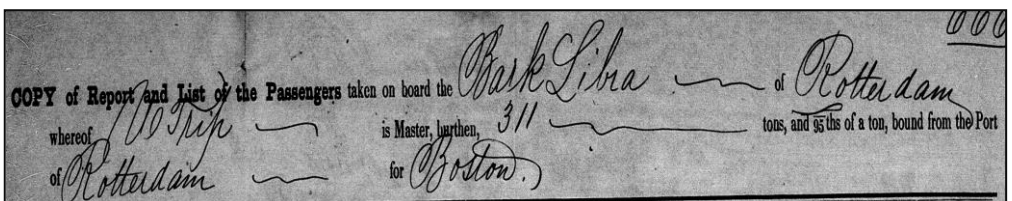 666
COPY of Report and List of the Passengers taken on board the Bark Libra of Rotterdam
whereof Trip is Master, burthen, 311 tons, and 95ths of a ton, bound from the Port
of Rotterdam for Boston.